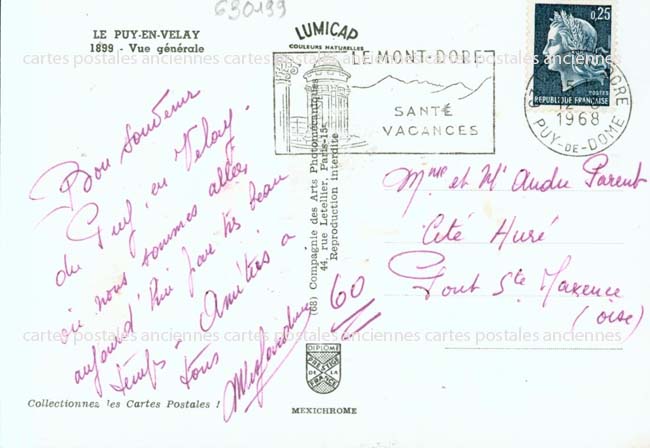 630199
LE PUY-EN-VELAY
1899 - Vue générale
LUMICAP
COULEURS NATURELLES
LE MONT-DORE
SANTÉ
VACANCES
0,25
POSTES
REPUBLIQUE FRANÇAISE
12
1968
PUY-DE-DOME
cartes postales anciennes cartes postales anciennes cartes postales anciennes
Bon souvenir
du Puy en Velay
où nous sommes allés
aujourd'hui par très beau
temps - Amitiés à
tous
(68) Compagnie des Arts Photomécaniques
44, rue Letellier, Paris-15e
Reproduction interdite
Mme et Mr Andre Parent
Cité Huré
Pont Ste Maxence
(oise)
60
cartes postales anciennes cartes postales anciennes cartes postales anciennes
DIPLOME
PRESTIGE
DE LA
FRANCE
Collectionnez les Cartes Postales !
MEXICHROME